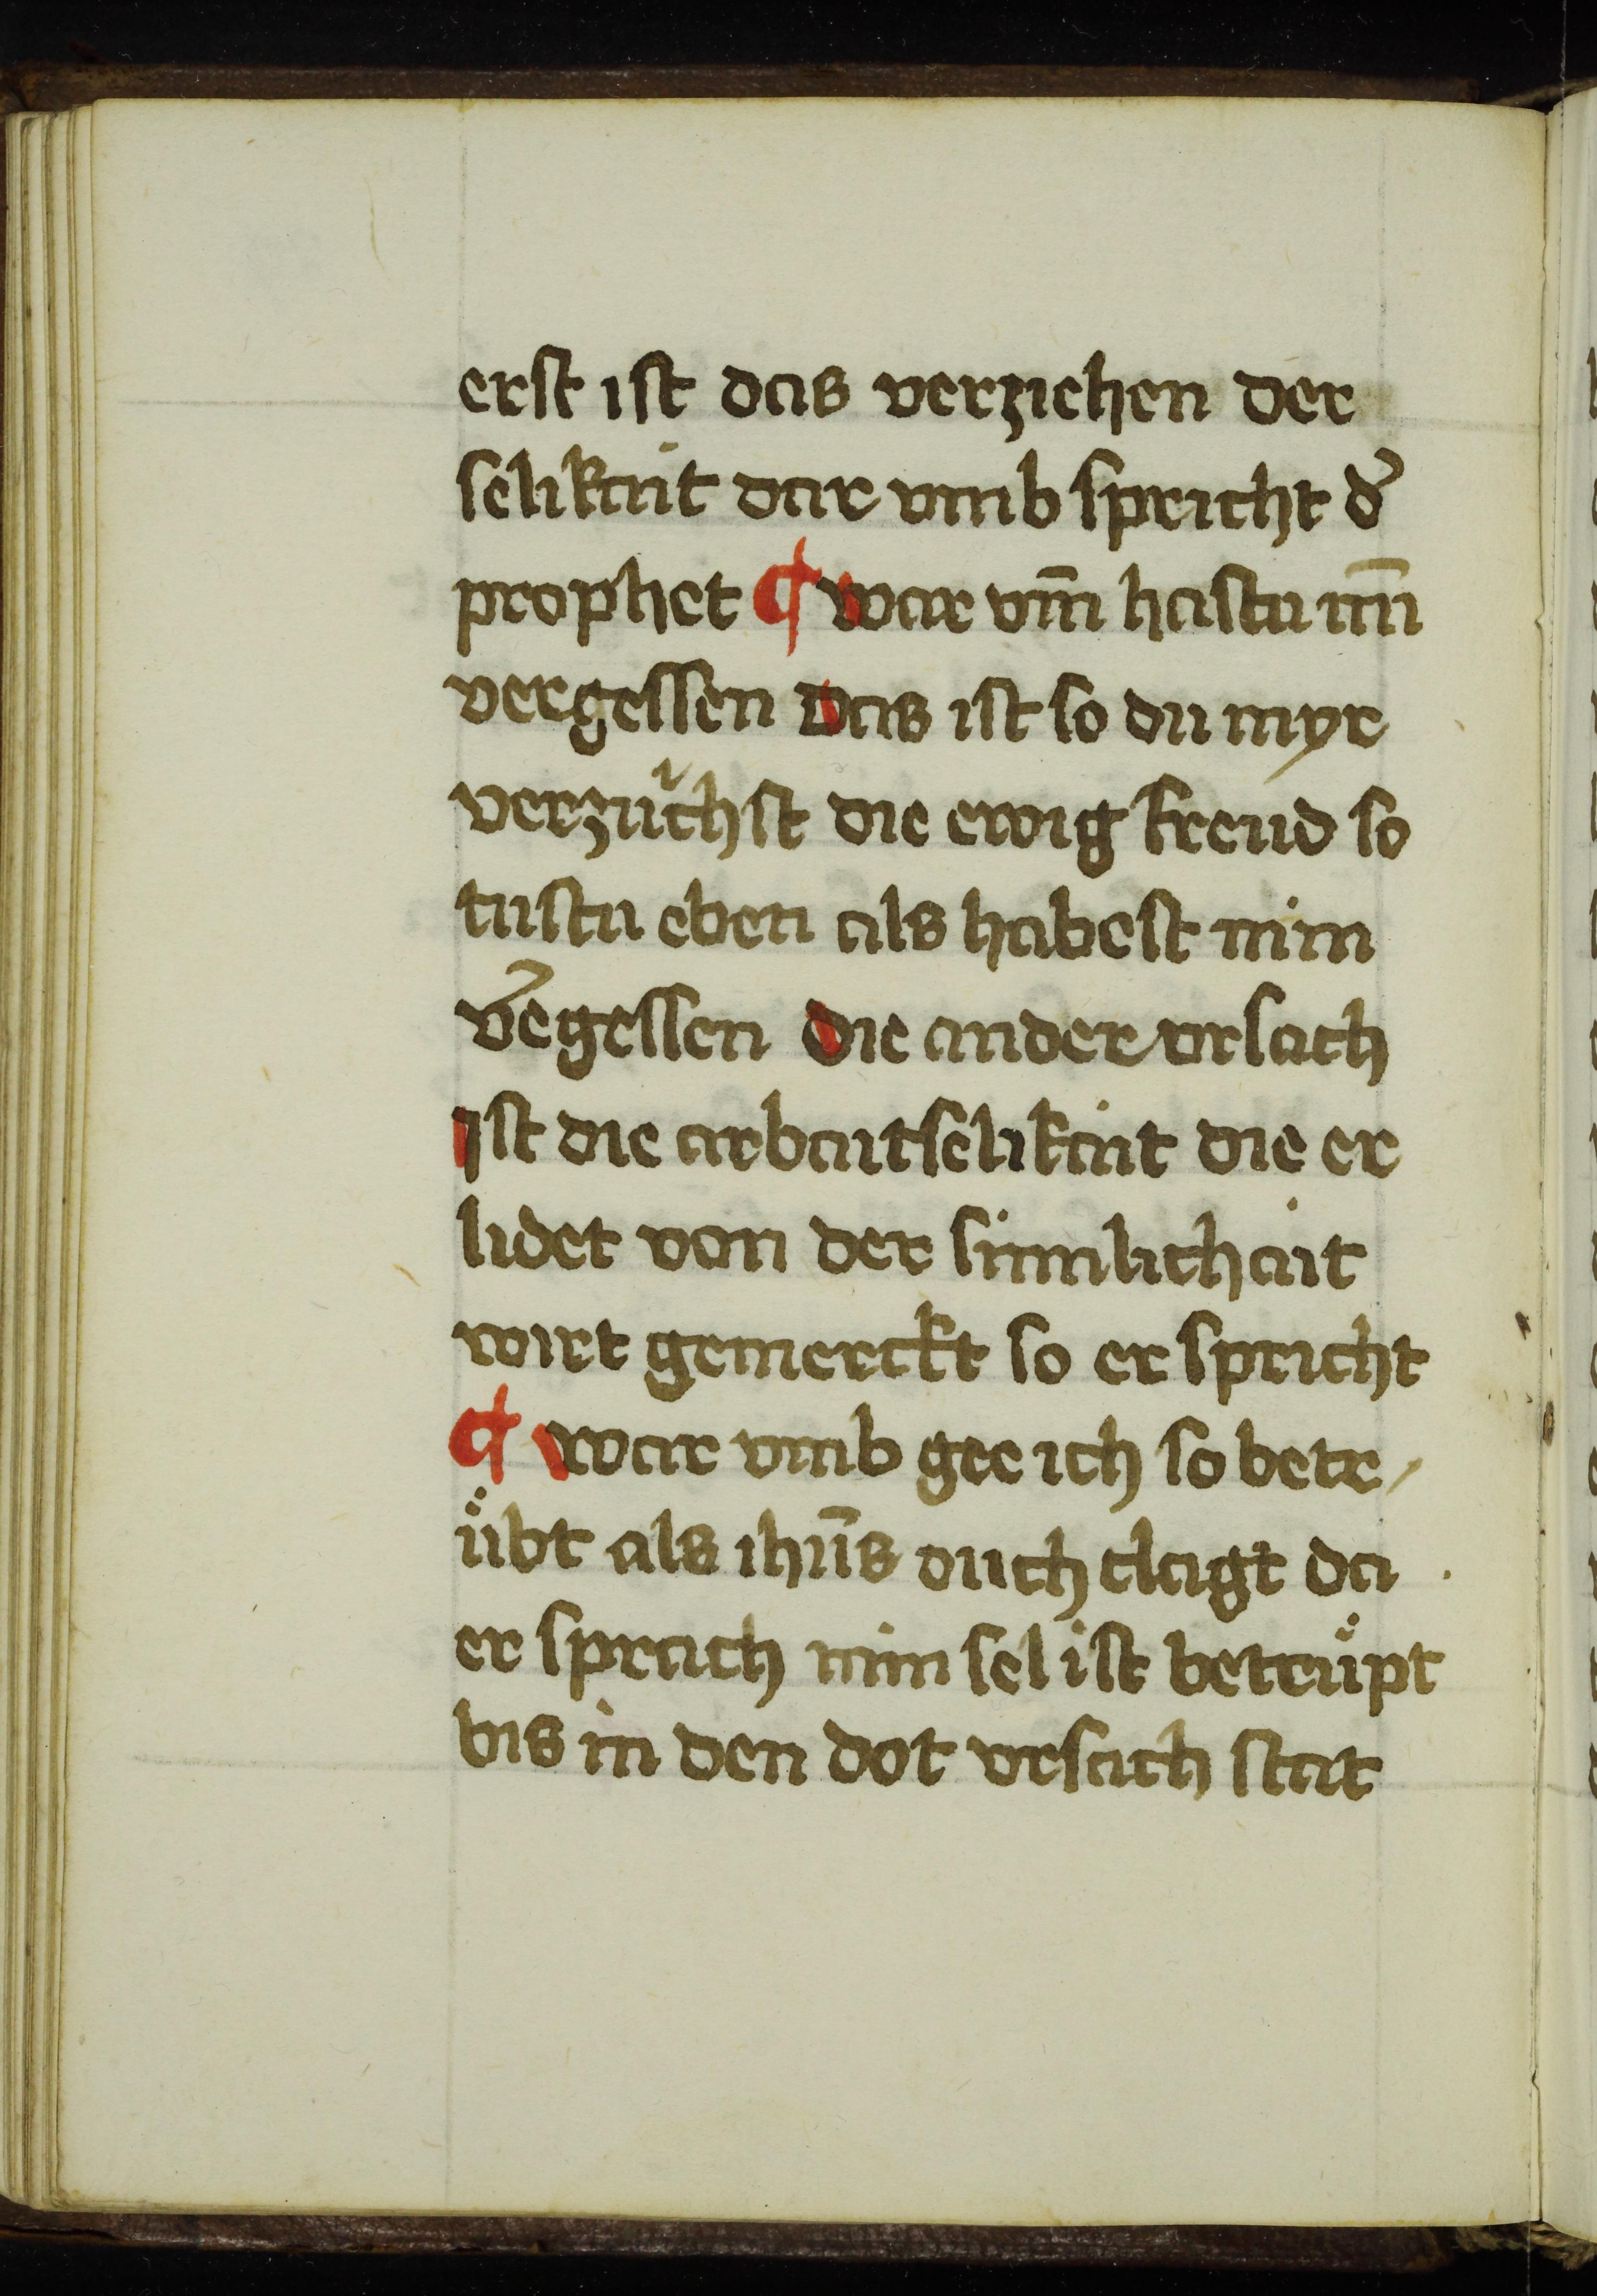 erst ist das verziehen der
selikait dar vmb spricht d̾
prophet ¶ war vm̄ hastu mı̄
vergessen Das ist so du myr
verzüchst die ewig freud so
tustu eben als habest min
v̾gessen Die ander vrsach
Ist die arbaitselikait die er
lidet von der sinnlichait
wirt gemerckt so er spricht
¶ war vmb gee ich so betr/
ůbt als ihūs ouch clagt da
er sprach min sel ist betrůpt
bis in den dot vrsach stat